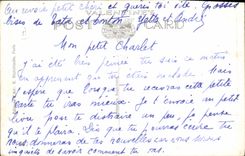 au revoir petit chéri et guéris toi vite. Grosses
bises de Tata et tonton
VALENTINE'S
POST CARD
Mon petit Charlot
J'ai été très peinée tu sais ce matin
en apprenant que tu étais malade. Mais
j'espère que lorsque tu recevras cette petite
carte tu iras mieux. Je t'envoie un petit
livre pour te distraire un peu, je pense
qu'il te plaira. Dès que tu pourras écrire tu
nous donneras de tes nouvelles car nous sommes
inquiets de savoir comment tu vas.